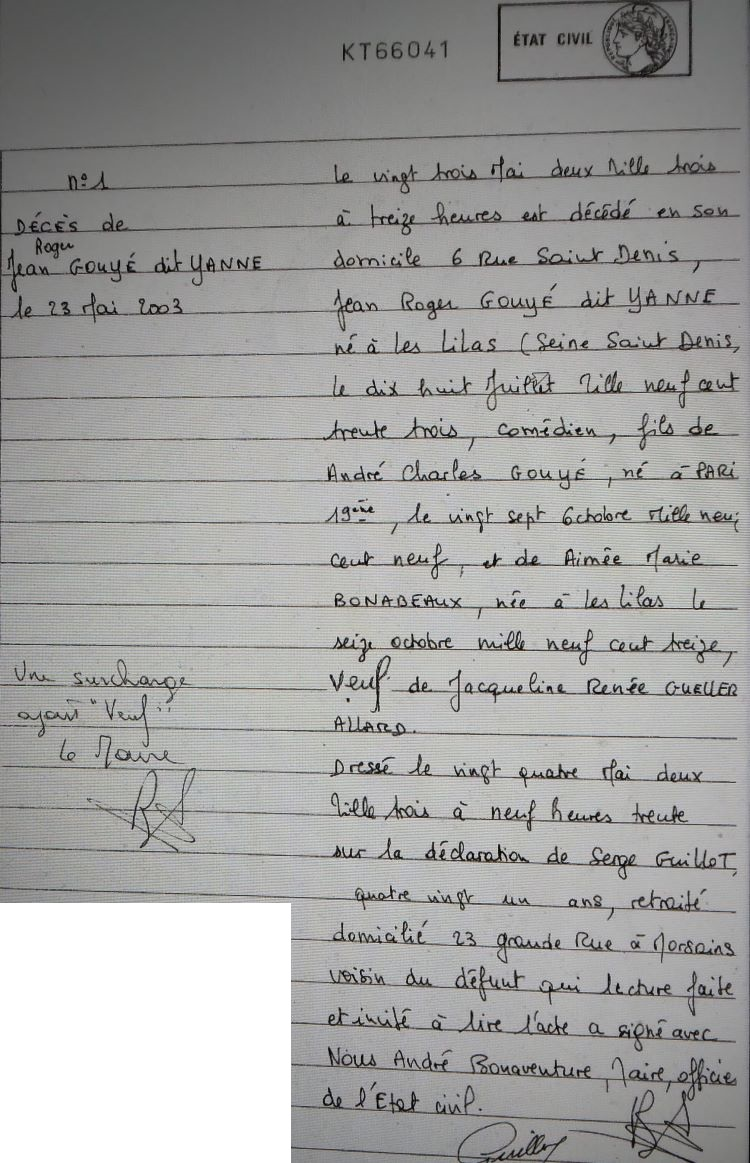 KT66041
ÉTAT CIVIL
n°1
DÉCÈS de
Roger
Jean GOUYÉ dit YANNE
le 23 Mai 2003
Une surcharge
ayant "Veuf"
Le Maire
Le vingt trois Mai deux Mille trois
à treize heures est décédé en son
domicile 6 Rue Saint Denis,
Jean Roger GOUYÉ dit YANNE
né à Les Lilas (Seine Saint Denis,
le dix huit Juillet Mille neuf cent
trente trois, comédien, fils de
André Charles GOUYÉ, né à PARI
19ème, le vingt sept Octobre Mille neuf
cent neuf, et de Aimée Marie
BONABEAUX, née à Les Lilas le
seize octobre mille neuf cent treize,
Veuf de Jacqueline Renée GUELLER
ALLARD.
Dressé le vingt quatre Mai deux
Mille trois à neuf heures trente
sur la déclaration de Serge GUILLOT,
quatre vingt un ans, retraité
domicilié 23 grande Rue à Morsains
voisin du défunt qui lecture faite
et invité à lire l'acte a signé avec
Nous André Bonaventure, Maire, officie
de l'Etat civil.